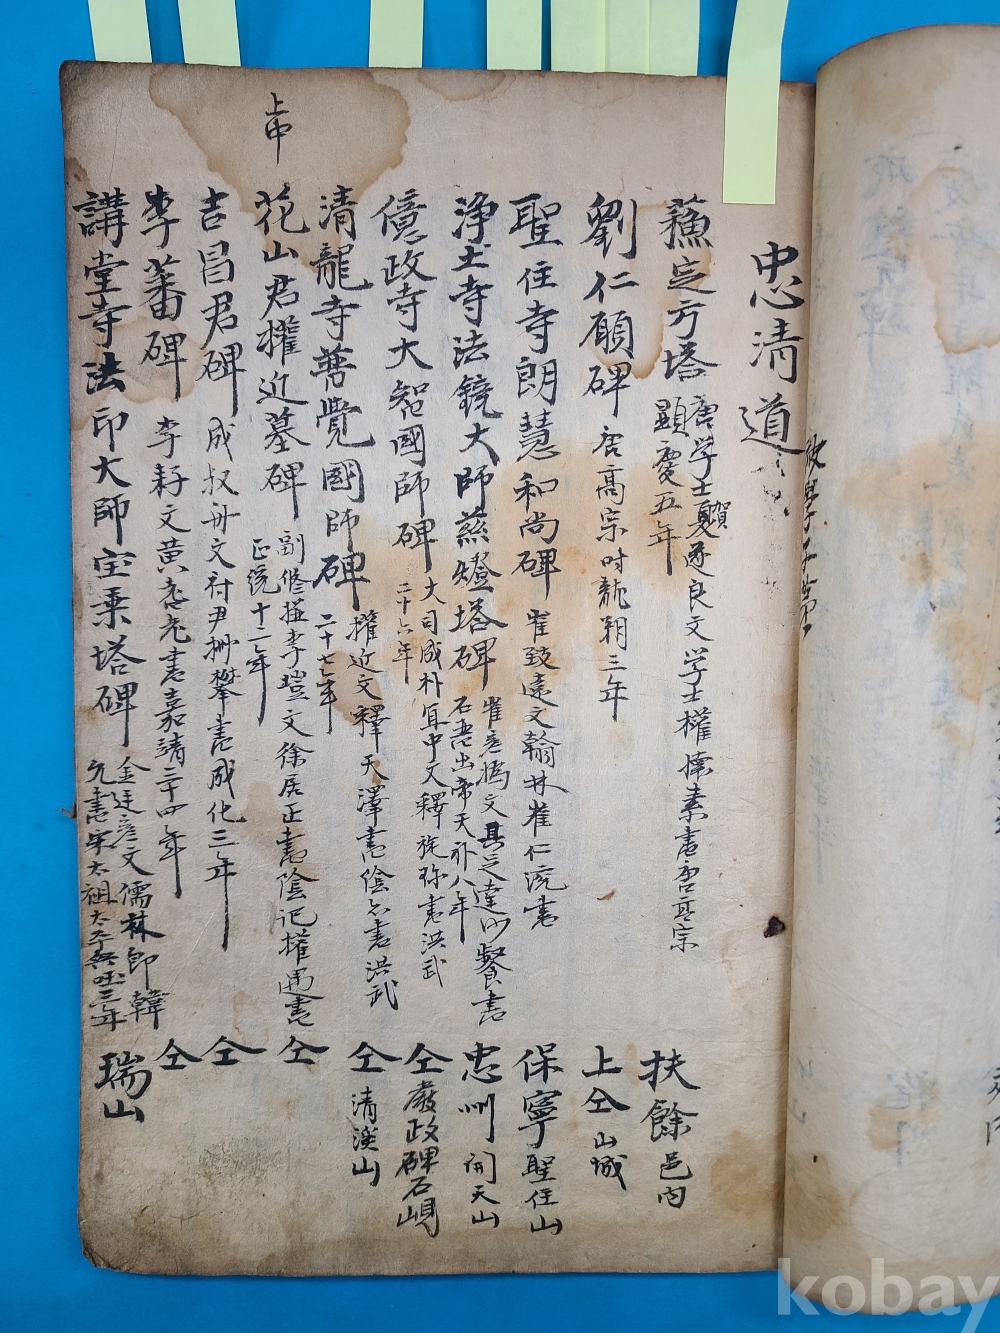 忠淸道
蘓定方塔 唐学士賀遂良文学士權懷素書唐高宗
顯慶五年 扶餘邑內
劉仁願碑 唐高宗时龍朔三年 上仝山城
聖住寺朗慧和尚碑 崔致遠文翰林崔仁渷書 保寧聖住山
淨土寺法鏡大師慈燈塔碑 崔彦撝文具足達以餐書
石晋出帝天福八年 忠州開天山
億政寺大智國師碑 大司成朴宜中文釋旋珎書洪武
二十六年 仝嚴政碑石峴
清龍寺普覺國師碑 權近文釋天澤書陰 書洪武
二十七年 仝清溪山
花山君權近墓碑 副修撰李塏文徐居正書陰記權遇書
正統十二年 仝
吉昌君碑 成叔舟文 尹 攀書成化三年 仝
李蕃碑 李籽文黃耆老書嘉靖三十四年 仝
講堂寺法印大師宝乗塔碑 金廷彦文儒林郎韓
允書宋太祖太平興国三年 瑞山
上中
kobay